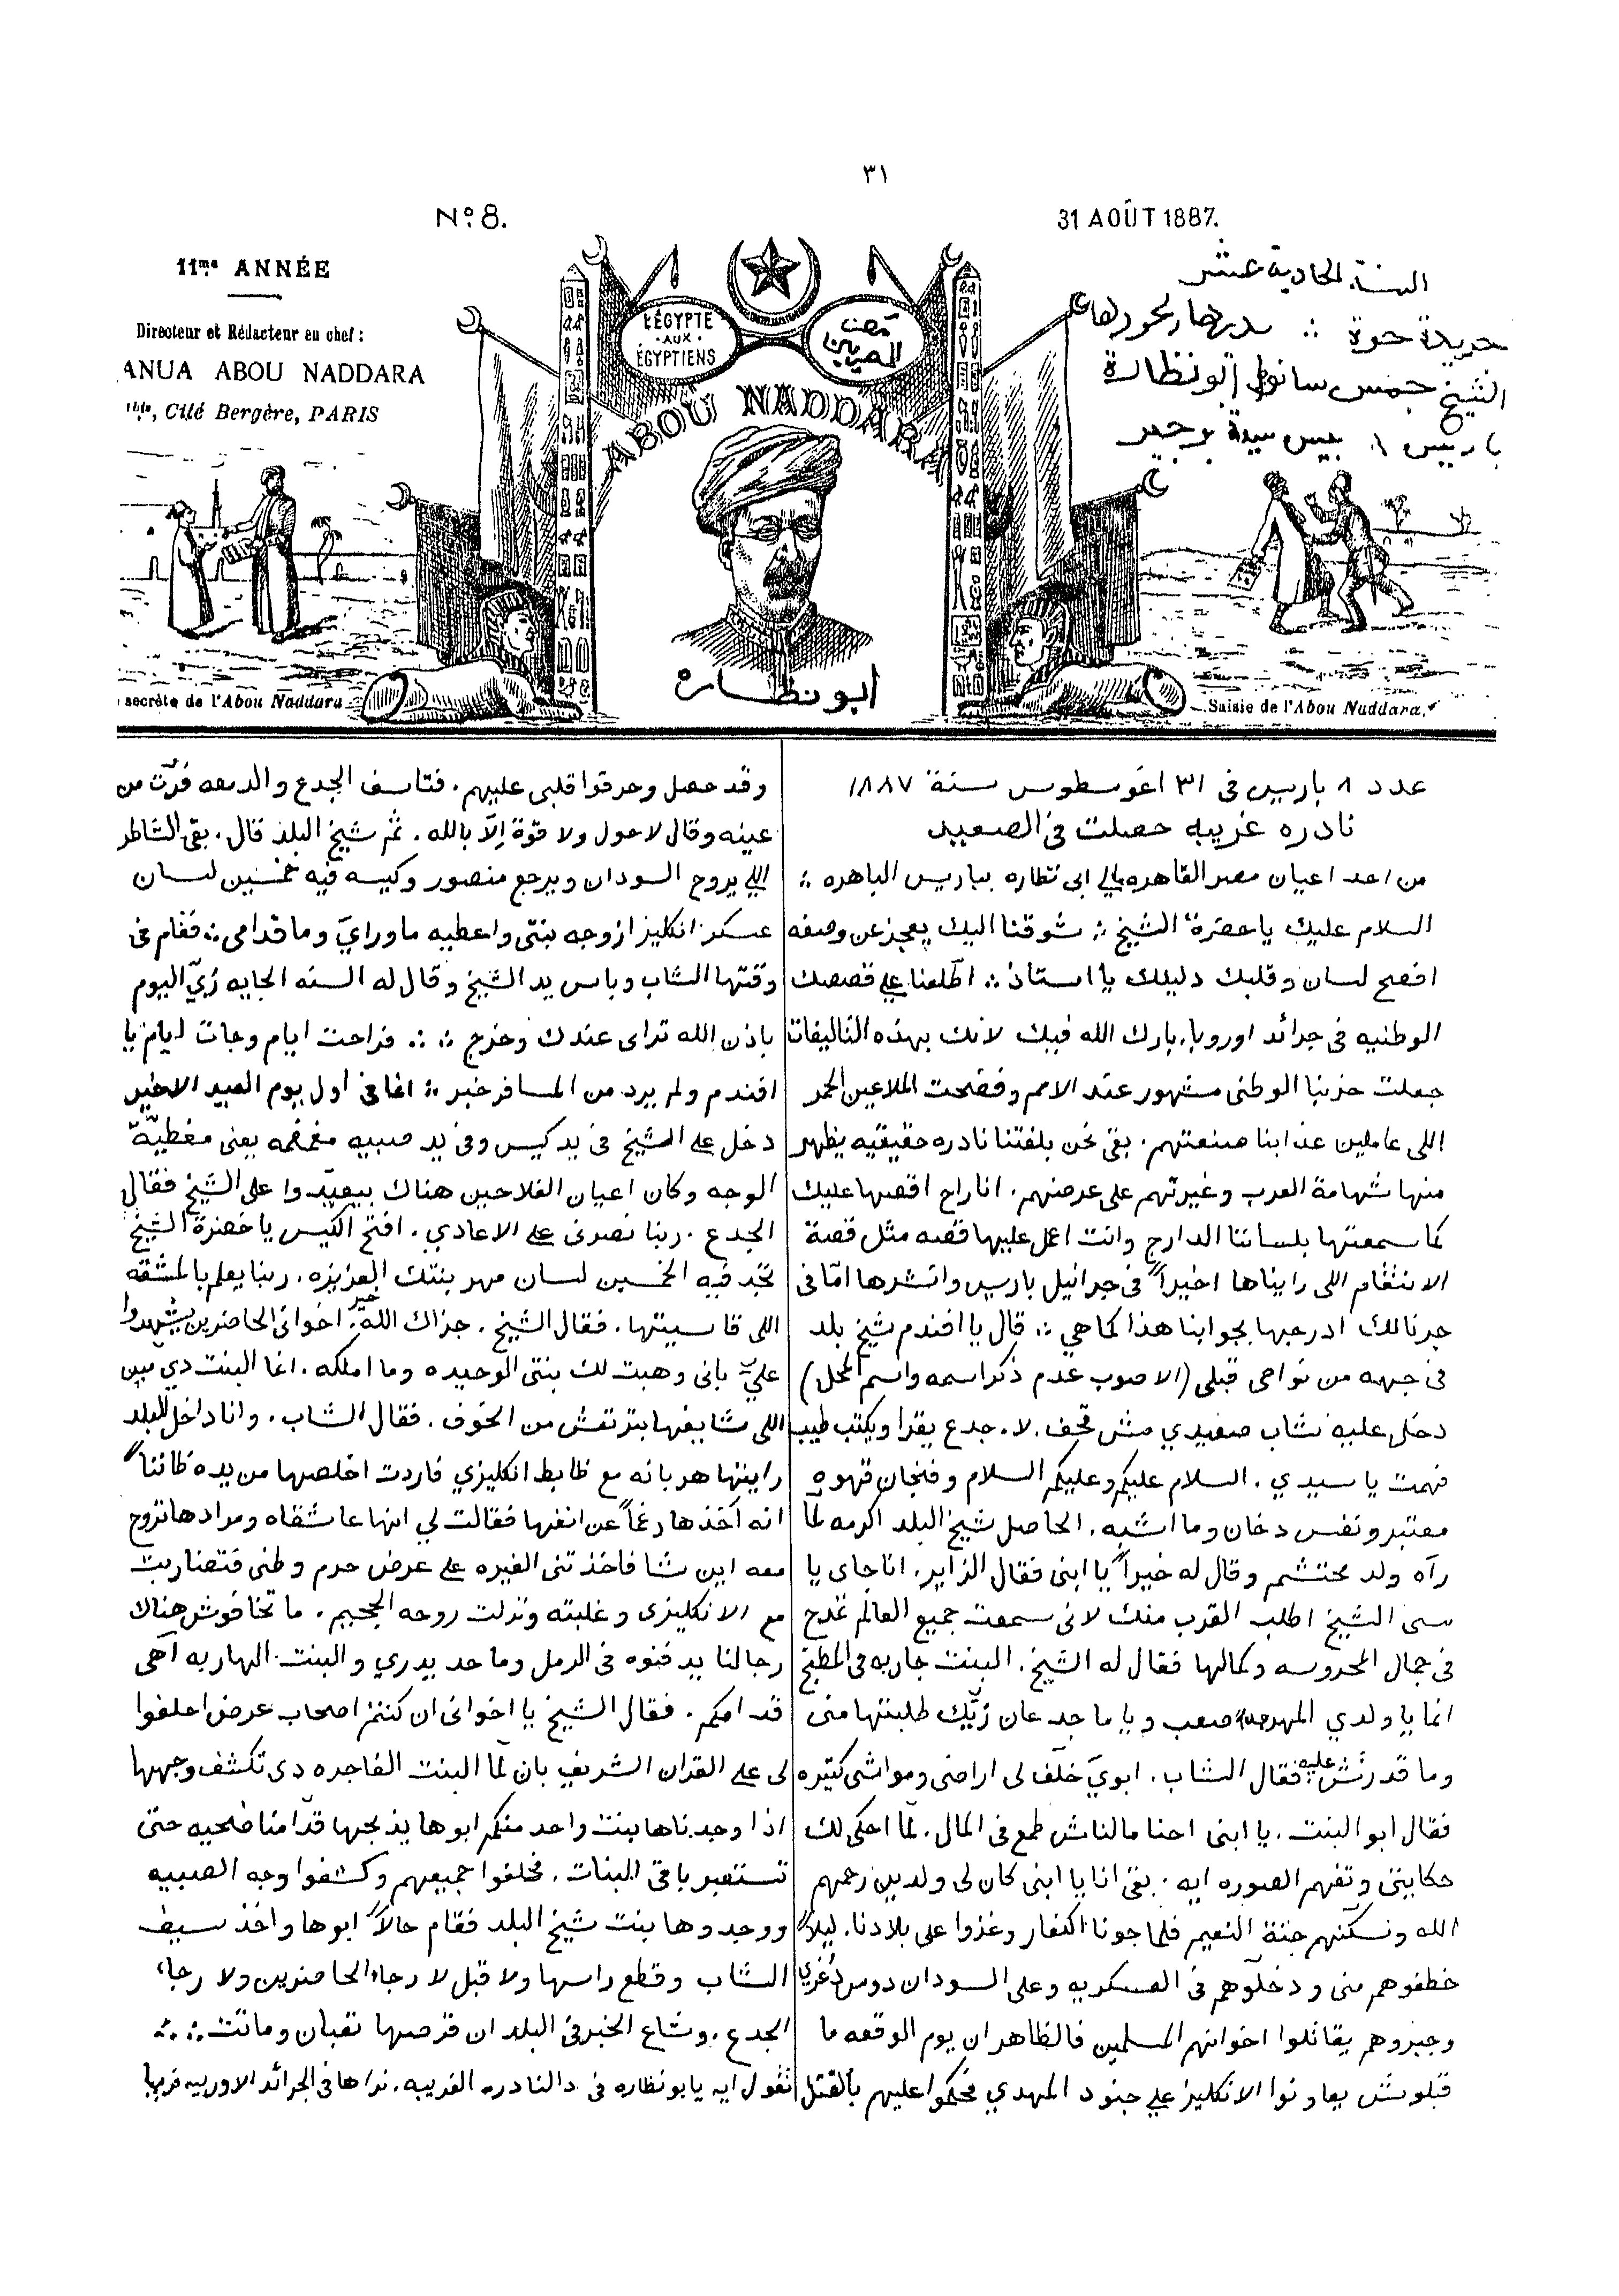 ٣١
Nº 8.
31 AOÛT 1887.
11me ANNÉE
Directeur et Rédacteur en chef :
ANUA ABOU NADDARA
Cité Bergère, PARIS
السنة الحادية عشر
جريدة حرة ∴ مديرها ومحررها
الشيخ جمس سانوا ابو نظارة
باريس
L'ÉGYPTE
AUX
ÉGYPTIENS
مصر
للمصريين
ABOU NADDARA
ابو نظاره
secrète de l'Abou Naddara
Saisie de l'Abou Naddara
عدد ٨ باريس فى ٣١ اغوسطوس سنة ١٨٨٧
نادره غريبه حصلت فى الصعيد
من احد اعيان مصر القاهره الى ابى نظاره بباريس الباهره ∴
السلام عليك يا حضرة الشيخ ∴ شوقنا اليك يعجز عن وصفه
افصح لسان وقلبك دليلك يا استاذ ∴ اطلعنا على قصصك
الوطنيه فى جرائد اوروبا. بارك الله فيك لانك بهذه التاليفات
جعلت حزبنا الوطنى مشهور عند الامم وفضحت الملاعين الحمر
اللى عاملين عدابنا صنعتهم. بقى نحن بلغتنا نادره حقيقيه يظهر
منها شهامة العرب وغيرتهم على عرضهم. انا راح اقصها عليك
كما سمعتها بلساننا الدارج وانت اعمل عليها قصه مثل قصة
الانتقام اللى رايناها اخيراً فى جرانيل باريس وانشرها امّا فى
جرنالك ادرجها بجوابنا هذا كما هي ∴ قال يا افندم شيخ بلد
فى جهه من نواحى قبلى (الاصوب عدم ذكر اسمه واسم المحل)
دخل عليه شاب صعيدي مش قحف. لا. جدع يقرا ويكتب طيب
فهمت يا سيدي. السلام عليكم وعليكم السلام وفنجان قهوه
معتبر ونفس دخان وما اشبه. الحاصل شيخ البلد اكرمه لما
رآه ولد محتشم وقال له خيراً يا ابنى فقال الزاير. انا جاى يا
سى الشيخ اطلب القرب منك لانى سمعت جميع العالم تمدح
فى جمال المحروسه وكمالها فقال له الشيخ. البنت جاريه فى المطبخ
انما يا ولدي المهر صعب وياما جدعان زيّك طلبتها منى
وما قدرتش عليه فقال الشاب. ابويَ خلّف لى اراضى ومواشى كتيره
فقال ابو البنت. يا ابنى احنا مالناش طمع فى المال. لمّا احكى لك
حكايتى وتفهم الصوره ايه. بقى انا يا ابنى كان لى ولدين رحمهم
الله ونسكّنهم جنة النعيم فلما جونا الكفار وغزوا على بلادنا. ليلاً
خطفوهم منى ودخلّوهم فى العسكريه وعلى السودان دوس دغري
وجبروهم يقاتلوا اخوانهم المسلمين فالظاهر ان يوم الوقعه ما
قبلوش يعاونوا الانكليز على جنود المهدي فحكموا عليهم بالقتل
وقد حصل وحرقوا قلبى عليهم. فتاسف الجدع والدمعه فرّت من
عينه وقال لا حول ولا قوة إلاّ بالله. ثم شيخ البلد قال. بقى الشاطر
اللي يروح السودان ويرجع منصور وكيسه فيه خمسين لسان
عسكر انكليز ازوجه بنتى واعطيه ما وراي وما قدامى ∴ فقام فى
وقتها الشاب وباس يد الشيخ وقال له السنه الجايه زيّ اليوم
باذن الله ترانى عندك وخرج ∴ ∴ فراحت ايام وجات ايام يا
افندم ولم يرد من المسافر خبر ∴ انما فى اول يوم العيد الاخير
دخل على الشيخ فى يد كيس وفى يد صبيه مغمغمه يعنى مغطيّة
الوجه وكان اعيان الفلاحين هناك بيعيّدوا على الشيخ فقال
الجدع. ربنا نصرنى على الاعادي. افتح الكيس يا حضرة الشيخ
تجد فيه الخمسين لسان مهر بنتك العزيزه. ربنا يعلم بالمشقه
اللى قاسيتها. فقال الشيخ. جزاك الله خير. اخوانى الحاضرين يشهدوا
عليّ بانى وهبت لك بنتى الوحيده وما املكه. انما البنت دي مين
اللى شايفها بترتعش من الخوف. فقال الشاب. وانا داخل البلد
رايتها هربانه مع ظابط انكليزي فاردت اخلصها من يده ظاننا
انه آخذها رغماً عن انفها فقالت لي انها عاشقاه ومرادها تروح
معه اين شا فاخذتنى الغيره على عرض حرم وطنى فتضاربت
مع الانكليزى وغلبته ونزلت روحه الجحيم. ما تخافوش هناك
رجالنا يدفنوه فى الرمل وما حد يدري والبنت الهاربه آهى
قدامكم. فقال الشيخ يا اخوانى ان كنتم اصحاب عرض احلفوا
لى على القران الشريف بان لمّا البنت الفاجره دى تكشف وجهها
اذا وجدناها بنت واحد منكم ابوها يذبحها قدّامنا ضحيه حتى
تستعبر باقى البنات. فحلفوا جميعهم وكشفوا وجه الصبيه
ووجدوها بنت شيخ البلد فقام حالاً ابوها واخذ سيف
الشاب وقطع راسها ولا قبل لا رجاء الحاضرين ولا رجاء
الجدع. وشاع الخبر فى البلد ان قرصها تعبان وماتت ∴ ∴
تقول ايه يابو نظاره فى دالنادره الغريبه. نراها فى الجرائد الاوربيه قريبا